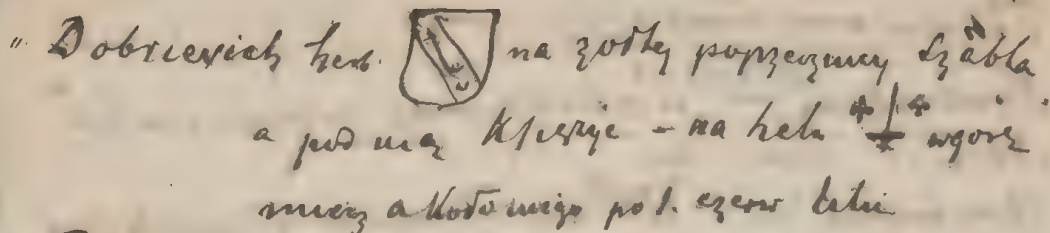 " Dobrzewich herb. na zołtej poprzecznicy szabla
a pod nią Księżyc - na helm wgórę
miecz a koło niego po 1. czerw lilii